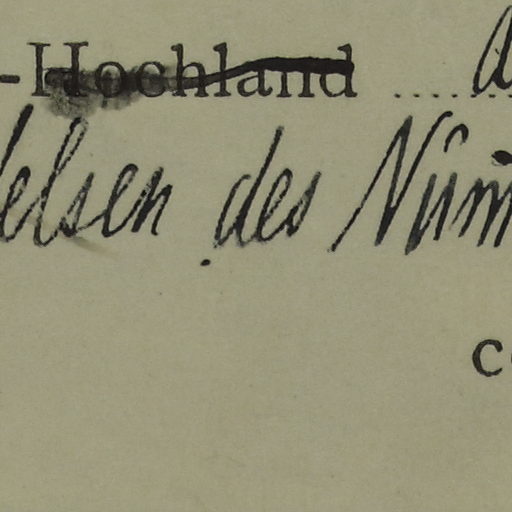 -Hochland ........
elsen des Num
c